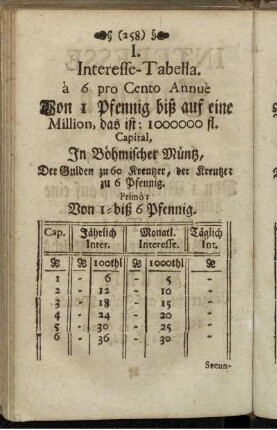 (258)
I.
Interesse-Tabella.
à 6 pro Cento Annuè
Von 1 Pfennig biß auf eine
Million, das ist: 1000000 fl.
Capital,
In Böhmischer Müntz,
Der Gulden zu 60 Kreutzer, der Kreutzer
zu 6 Pfennig.
Primò:
Von 1-biß 6 Pfennig.
Cap. Jährlich Monatl. Täglich
Inter. Interesse. Int.
₰ ₰ 100thl ₰ 1000thl ₰
1 - 6 - 5 -
2 - 12 - 10 -
3 - 18 - 15 -
4 - 24 - 20 -
5 - 30 - 25 -
6 - 36 - 30 -
Secun-